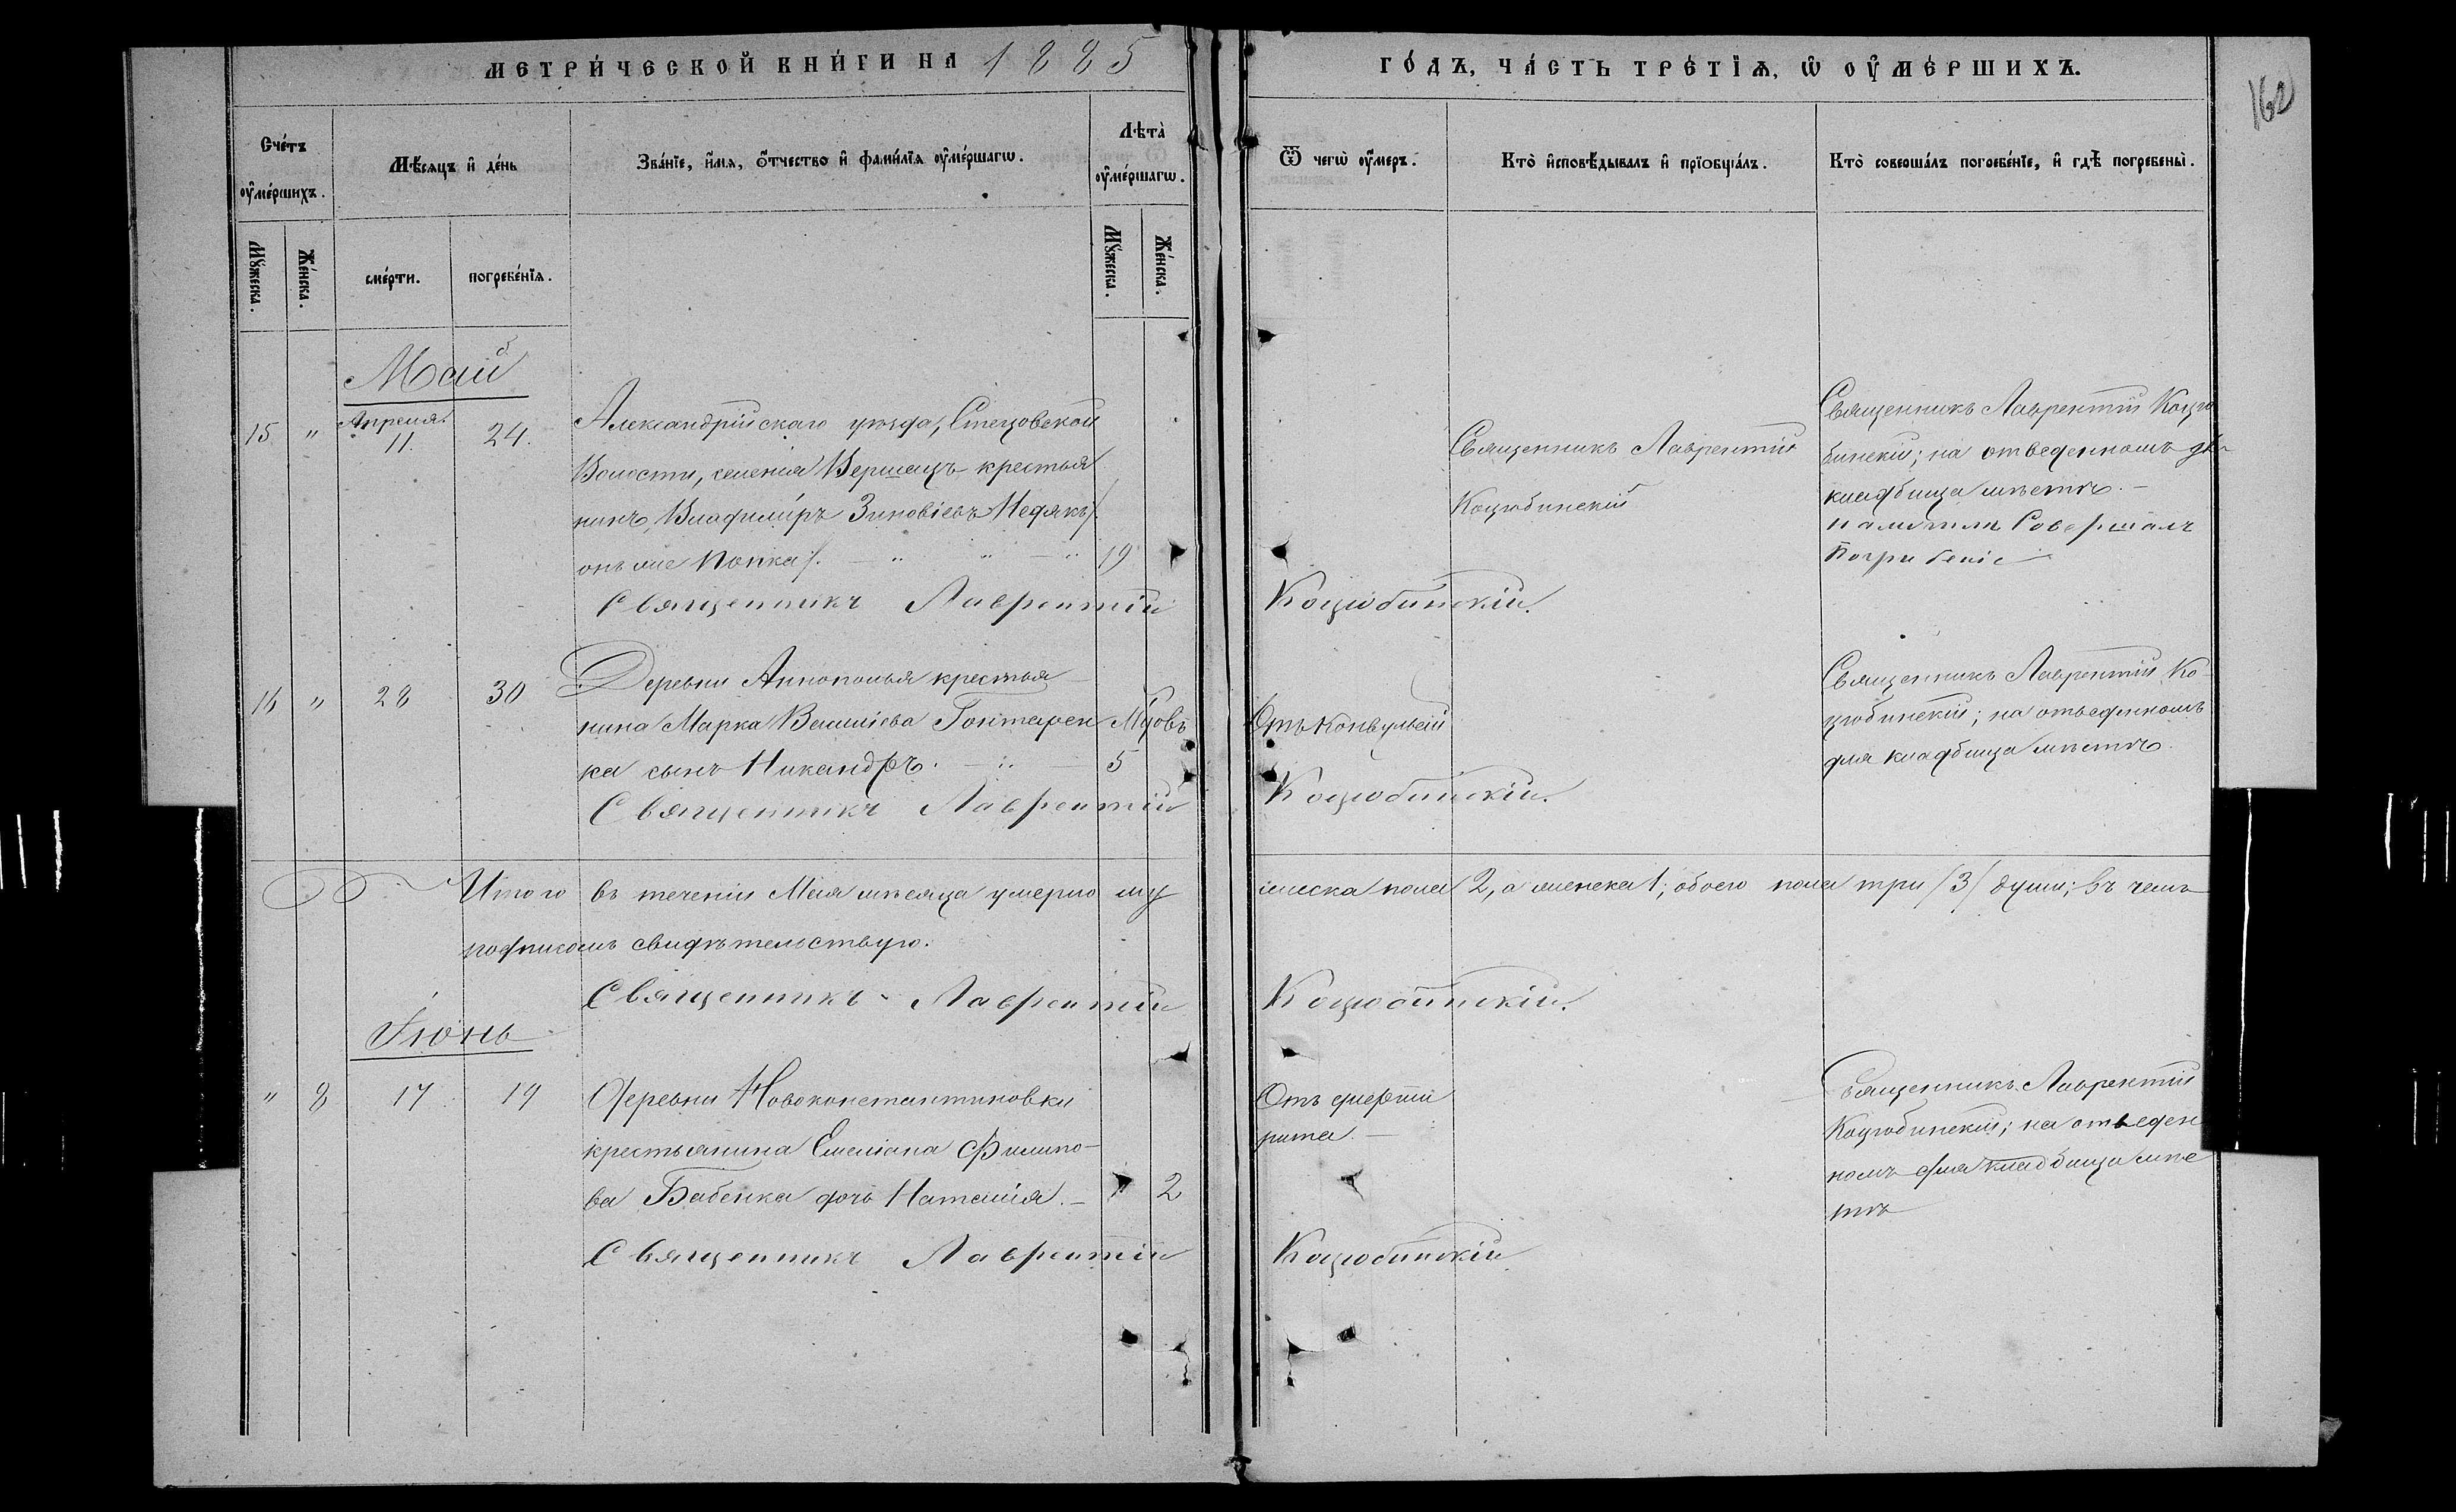 МЕТРИ́ЧЕСКОЙ КНИ́ГИ НА 1885
ГО́ДЪ, ЧА́СТЬ ТРЕ́ТІѦ, Ѡ ОУ҆МЕ́РШИХЪ.
162
Сче́тъ
оу҆ме́ршихъ.
Мѣ́сяцъ и҆ де́нь
Зва́нїе, и҆́мя, ѻ҆́тчество и҆ фами́лїя оу҆ме́ршагѡ.
Лѣта̀
оу҆ме́ршагѡ.
Ѿ чегѡ̀ оу҆́меръ.
Кто̀ и҆сповѣ́дывалъ и҆ прїобща́лъ.
Кто̀ соверша́лъ погребе́нїе, и҆ гдѣ̀ погребены̀.
Мꙋ́жеска.
Же́нска.
сме́рти.
погребе́нїѧ.
Мꙋ́жеска.
Же́нска.
Май
15 " Апреля 11. 24.
Александрійскаго уѣзда, Стецовской
Волости, селенія Вершацъ крестья
нинъ, Владиміръ Зиновіевъ Недякъ/.
онъ же Попка/. — " " — " 19
Священникъ Лаврентій
Коцюбинскій
Священникъ Лаврентій Коцю
бинскій; на отведенномъ для
кладбища мѣстѣ. —
Совершалъ
Погрибеніе
Священникъ Лаврентій Коцюбинскій.
16 " 28 30
Деревни Аннополья крестья
нина Марка Василіева Гонтарен
ка сынъ Никандръ. — :. —
М-цовъ
5
Отъ Конвульсій
Священникъ Лаврентій Ко
цюбинскій; на отведенномъ
для кладбища мѣстѣ.
Священникъ Лаврентій Коцюбинскій.
Итого въ теченіи Мая мѣсяца умерло му жеска пола 2, а женска 1; обоего пола три /3/ души; въ чемъ
подписомъ свидѣтельствую.
Священникъ Лаврентій Коцюбинскій.
Іюнь
" 8 17 19
Деревни Новоконстантиновки
крестьянина Емеліана Филипо-
ва Бабенка дочь Наталія. — " 2
Отъ дифти
рита. —
Священникъ Лаврентій
Коцюбинскій; на отведен
номъ для кладбища мѣс
тѣ
Священникъ Лаврентій Коцюбинскій